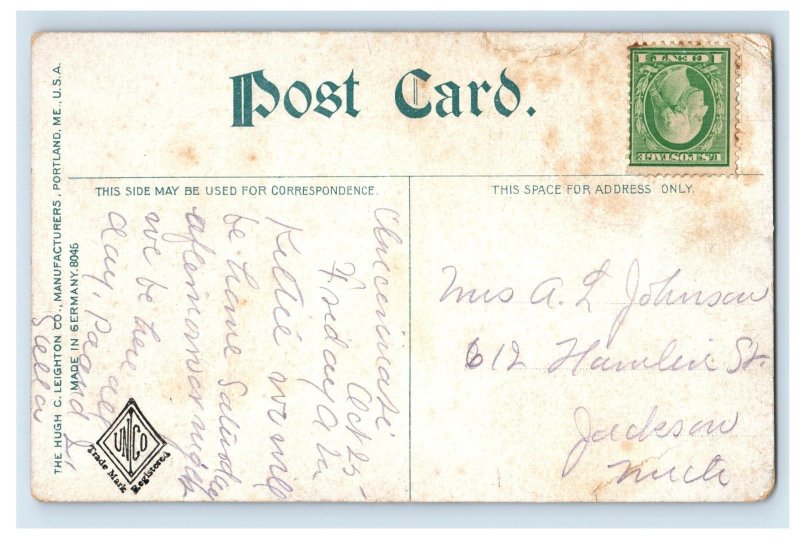 Post Card.
1 CENT 1
U.S. POSTAGE
THIS SIDE MAY BE USED FOR CORRESPONDENCE.
THIS SPACE FOR ADDRESS ONLY.
THE HUGH C. LEIGHTON CO., MANUFACTURERS, PORTLAND, ME., U.S.A.
MADE IN GERMANY. 8045
Cincinnati
Oct 25
Friday A M
Kittie we will
be home Saturday
afternoon or night
we be here all
day, Pa and I.
Stella
UNCO
Trade Mark Registered
Mrs A. L Johnson
612 Hamlin St.
Jackson
Mich